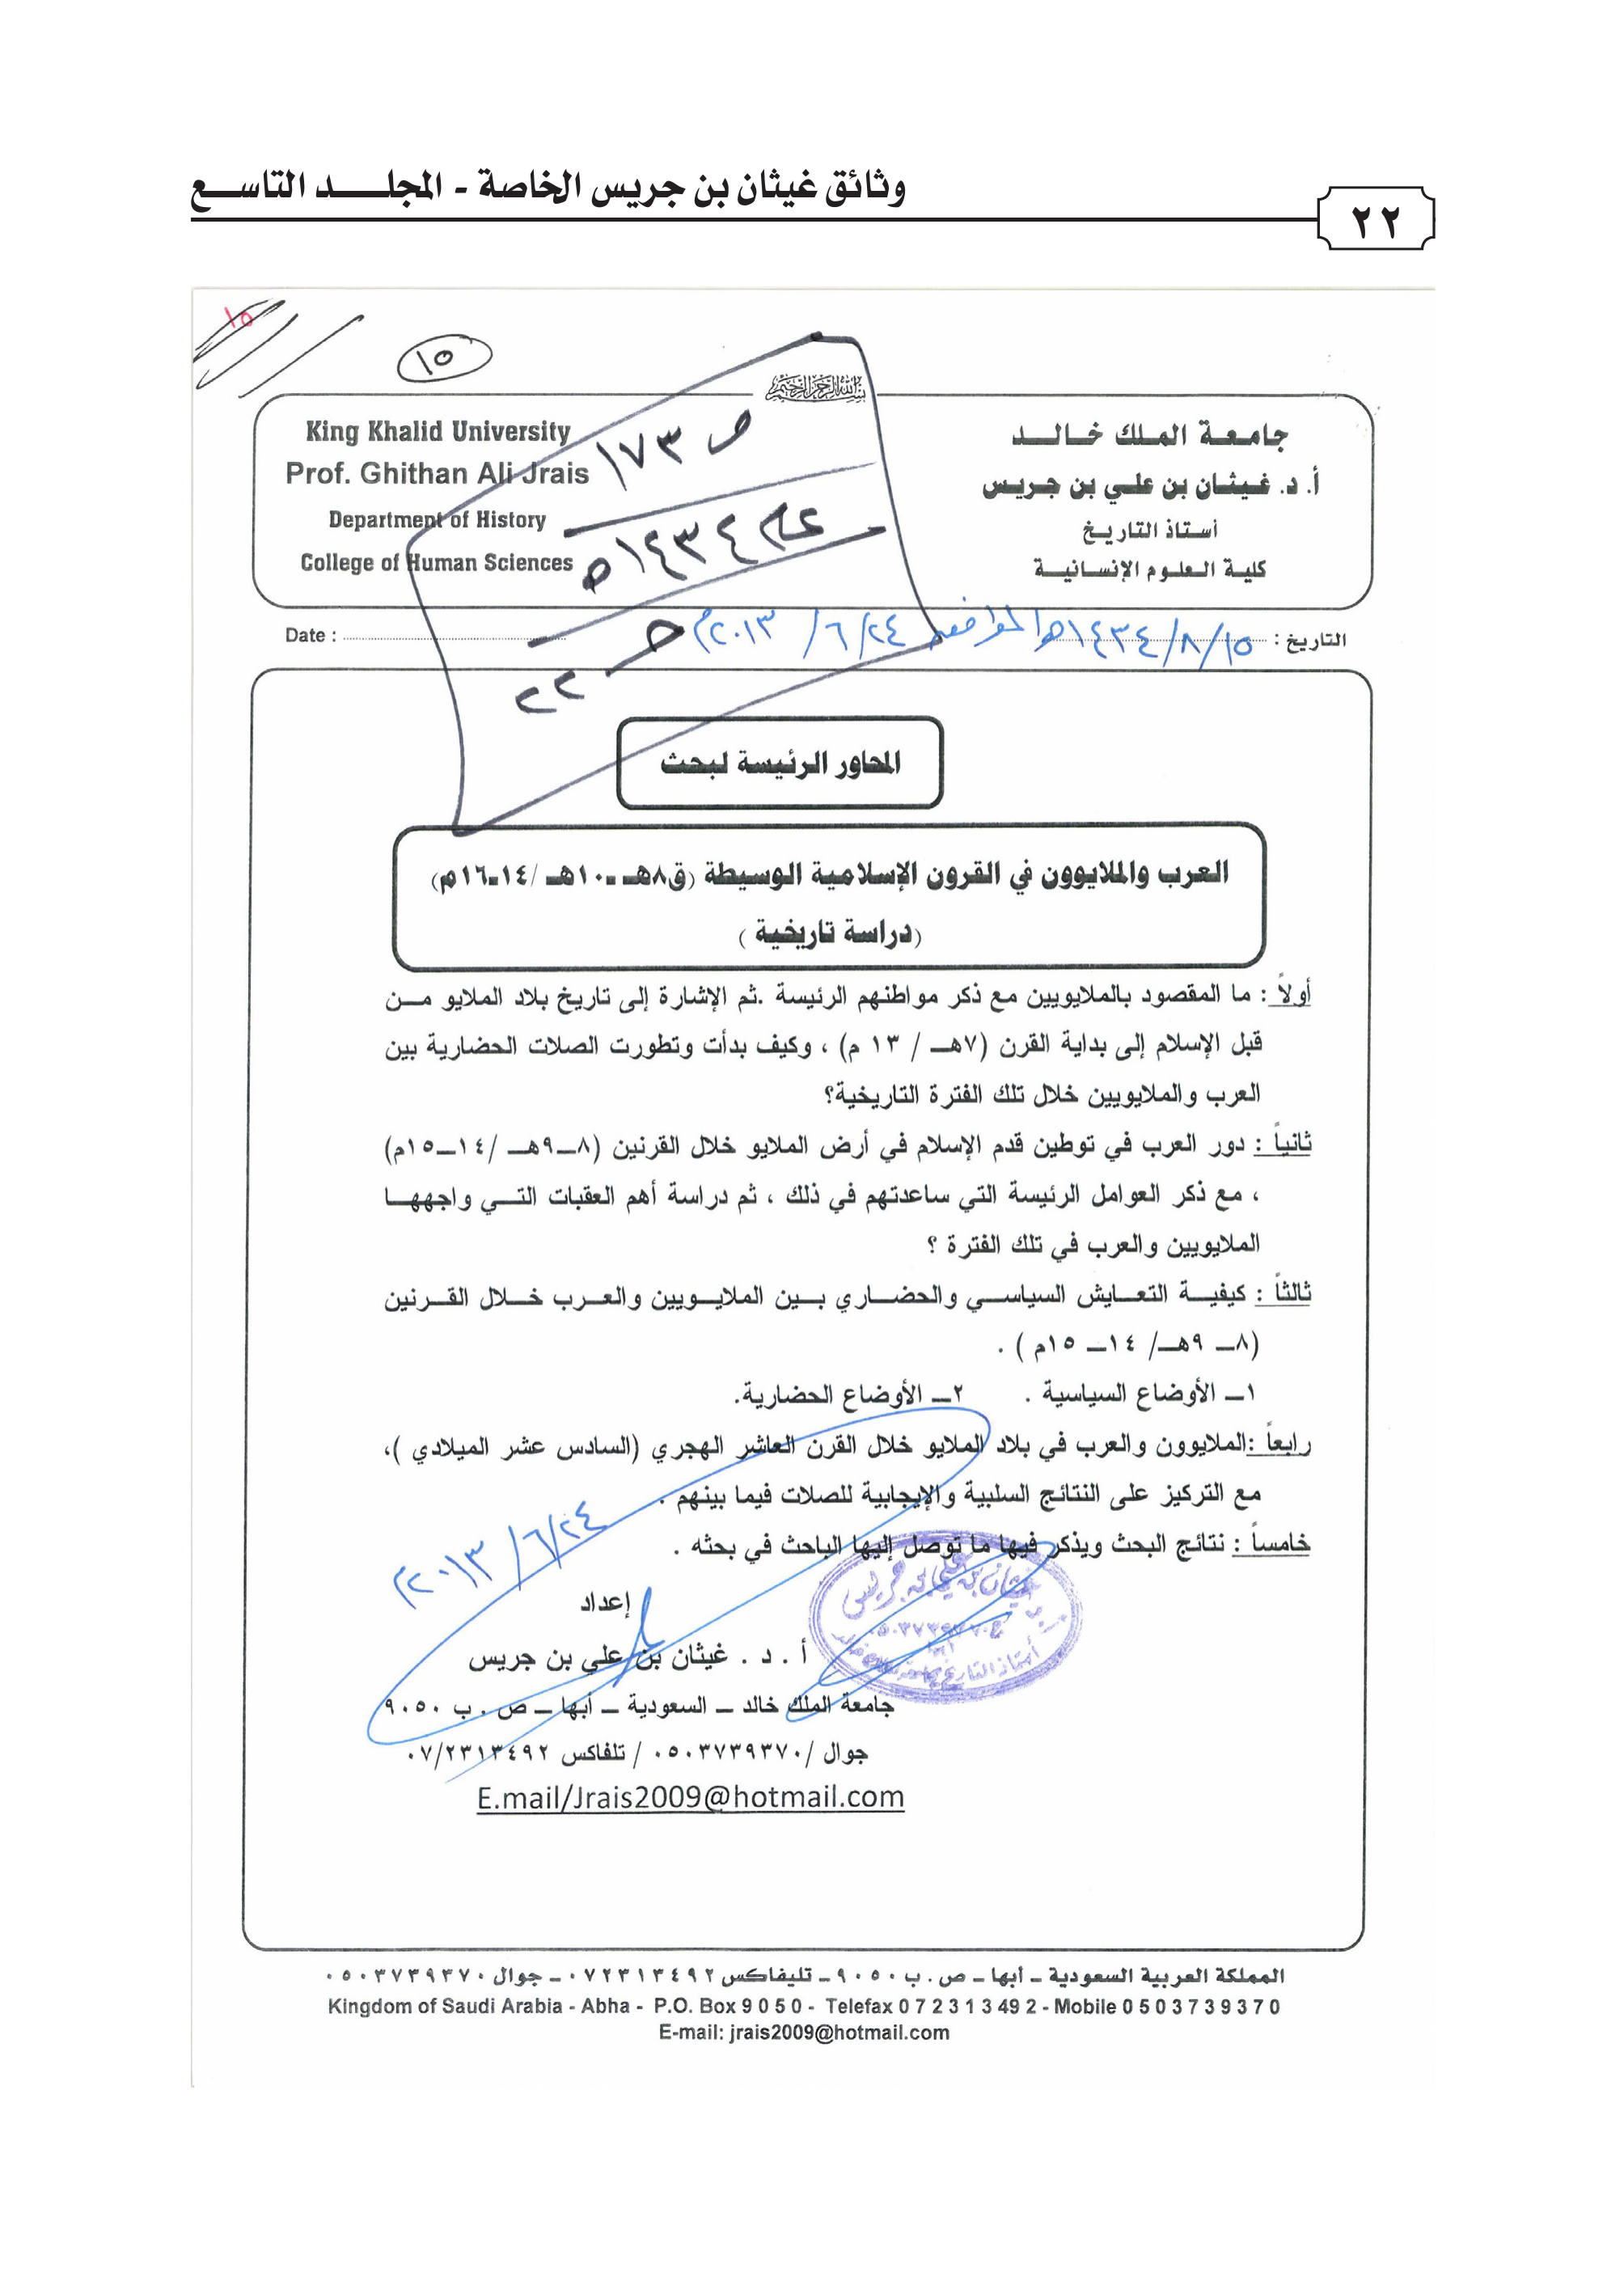 وثائق غيثان بن جريس الخاصة - المجلد التاسع
٢٢
١٥
١٥
بسم الله الرحمن الرحيم
جامعة الملك خالد
أ. د. غيثان بن علي بن جريس
أستاذ التاريخ
كلية العلوم الإنسانية
King Khalid University
Prof. Ghithan Ali Jrais
Department of History
College of Human Sciences
ص ١٧٣
عام ١٤٣٤هـ
حـ ٢٢
التاريخ : ١٤٣٤/٨/١٥هـ الموافق ٢٠١٣/٦/٢٤م
Date :
المحاور الرئيسة لبحث
العرب والملايوون في القرون الإسلامية الوسيطة (ق٨هـ ـ ١٠هـ /١٤ـ١٦م)
(دراسة تاريخية )
أولاً : ما المقصود بالملايويين مع ذكر مواطنهم الرئيسة .ثم الإشارة إلى تاريخ بلاد الملايو من
قبل الإسلام إلى بداية القرن (٧هـ / ١٣ م) ، وكيف بدأت وتطورت الصلات الحضارية بين
العرب والملايويين خلال تلك الفترة التاريخية؟
ثانياً : دور العرب في توطين قدم الإسلام في أرض الملايو خلال القرنين (٨ـ٩هـ /١٤ـ١٥م)
، مع ذكر العوامل الرئيسة التي ساعدتهم في ذلك ، ثم دراسة أهم العقبات التي واجهها
الملايويين والعرب في تلك الفترة ؟
ثالثاً : كيفية التعايش السياسي والحضاري بين الملايويين والعرب خلال القرنين
(٨ـ ٩هـ/ ١٤ـ ١٥م ) .
١ـ الأوضاع السياسية . ٢ـ الأوضاع الحضارية.
رابعاً :الملايوون والعرب في بلاد الملايو خلال القرن العاشر الهجري (السادس عشر الميلادي )،
مع التركيز على النتائج السلبية والإيجابية للصلات فيما بينهم .
خامساً : نتائج البحث ويذكر فيها ما توصل إليها الباحث في بحثه .
٢٠١٣/٦/٢٤م
إعداد
غيثان بن علي بن جريس
أستاذ التاريخ بجامعة الملك خالد
أ . د . غيثان بن علي بن جريس
جامعة الملك خالد ـ السعودية ـ أبها ـ ص . ب ٩٠٥٠
جوال /٠٥٠٣٧٣٩٣٧٠ / تلفاكس ٠٧/٢٣١٣٤٩٢
E.mail/Jrais2009@hotmail.com
المملكة العربية السعودية ـ أبها ـ ص . ب ٩٠٥٠ ـ تليفاكس ٠٧٢٣١٣٤٩٢ ـ جوال ٠٥٠٣٧٣٩٣٧٠
Kingdom of Saudi Arabia - Abha - P.O. Box 9 0 5 0 - Telefax 0 7 2 3 1 3 49 2 - Mobile 0 5 0 3 7 3 9 3 7 0
E-mail: jrais2009@hotmail.com